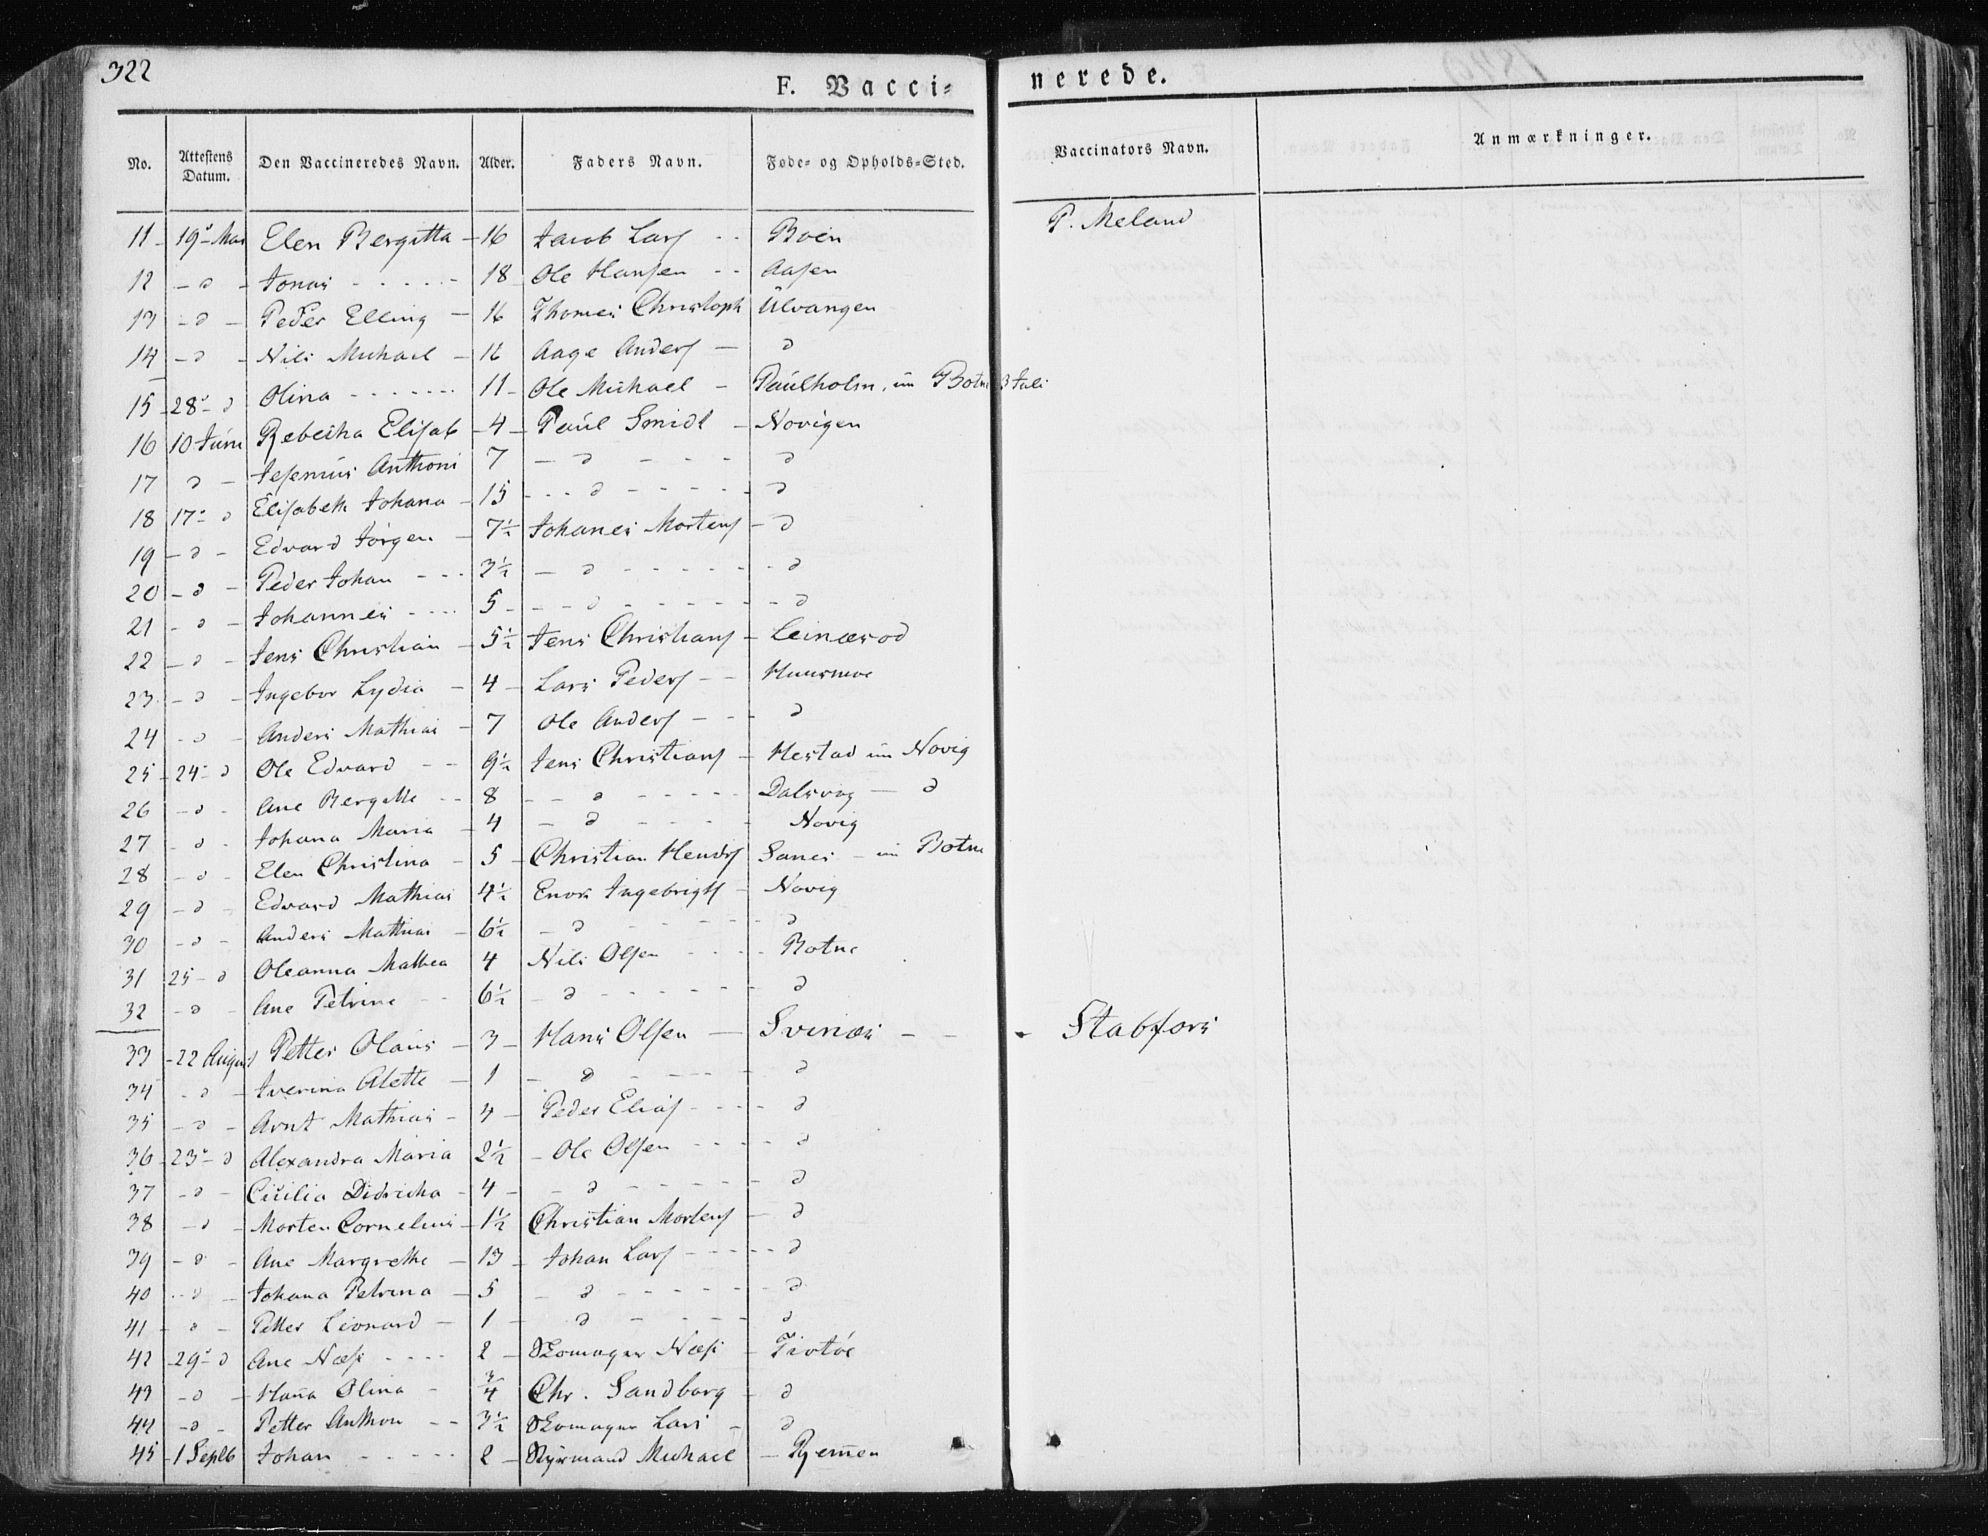 322
F. Vacci-nerede.
No. Attestens Datum. Den Vaccineredes Navn. Alder. Faders Navn. Føde- og Opholds-Sted. Vaccinators Navn. Anmærkninger.
11 - 19de Mai Elen Bergitta - 16 Jacob Lars - - Boen P. Meland
12 - d - Jonas - - - - - 18 Ole Hansen - - Aasen
13 - d - Peder Elling - 16 Thomes Christoph Ulvangen
14 - d - Nils Michael - 12 Aage Anders - d
15 - 28de d Olina - - - - - 11 - Ole Michael - Paulholm, im Botn 3 Juli
16 10 Juni Rebecka Elisab - 4 - Paul Smidt - Novigen
17 d - Jesenius Anthoni 7 - d - - - - d
18 17de d Elisabeth Johana - 15 - - - d - - - - - d
19 - d - Edvard Jørgen - 7½ Johanes Mortens - d
20 - d - Peder Johan - - - 3½ - d - - - - - - d
21 - d - Johannes - - - - 5 - - - d - - - - - - d
22 - d - Jens Christian - 5½ Jens Christians - Leinæsod
23 - d - Ingebor Lydia - 4 - Lars Peders - - Huusmoe
24 - d - Anders Mathias - 7 Ole Anders - - - d
25 - 24de d Ole Edvard - - 9½ Jens Christians - Hestad im Novig
26 - d - Ane Bergitte - - 8 - - d - - - - - Dalsvag - d
27 - d - Johana Maria - 4 - d - - - - Novig
28 - d - Elen Christina - 5 - Christian Hendrs Sanes - im Botne
29 - d - Edvard Mathias 4½ Enok Ingebrigts - Novig
30 - d - Anders Mathias - 6½ - d - - - - - d
31 25 - d Oleanna Mathea 4 Nils Olsen - - - - Botne
32 - d - Ane Petrine - - 6½ - d - - - - - - d
33 - 22 August Petter Olaus - 3 - Hans Olsen - Svinæs - - - Stabfors
34 - d - Iverina Alette - 1 - d - - - - - d
35 - d - Arnt Mathias - 4 - Peder Elias - - - - d
36 - 23de d Alexandra Maria 2½ - Ole Olsen - - - - - d
37 - d - Cicilia Didricka - 4 - - d - - - - - - d
38 - d - Morten Cornelius - 1½ Christian Mortens - d
39 - d - Ane Margrethe - 13 - Johan Lars - - - - - d
40 - d - Johana Petrina - 5 - d - - - - - - d
41 - d - Petter Leonard - 1 - d - - - - d
42 - 29de d Ane Næss - - - - 2 - Skomager Næss - Tiøtøe
43 - d - Hana Olina - ¾ Chr. Sandborg - d
44 - d - Petter Anthon - - 3½ Skomager Lars - d
45 - 1 Septb Johan - - - - - 2 - Styrmand Michael - Remen